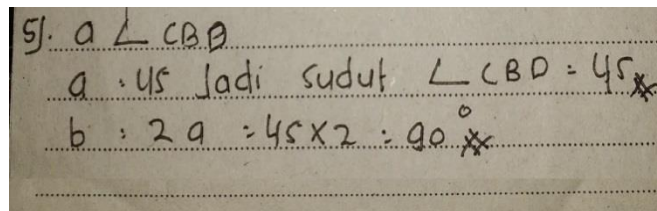 5). a ∠ CBD
a : 45 Jadi sudut ∠ CBD = 45
b : 2 a : 45 x 2 : 90°